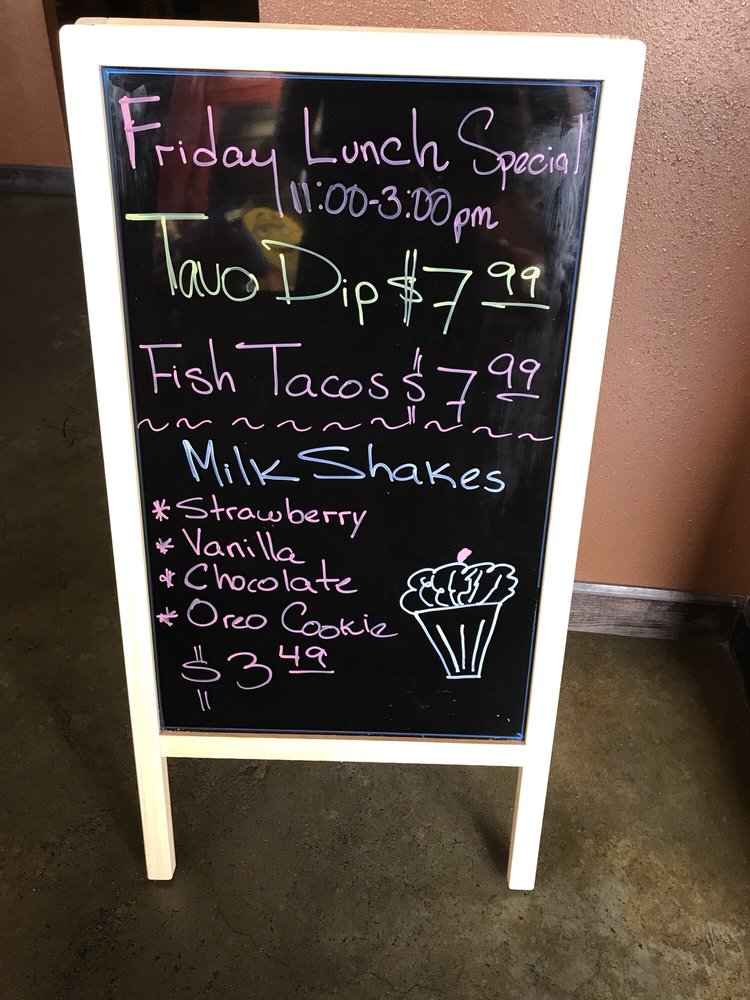 Friday Lunch Special
11:00-3:00pm
Tavo Dip $7.99
Fish Tacos $7.99
~ ~ ~ ~ ~ ~ ~ ~ ~ ~
Milk Shakes
* Strawberry
* Vanilla
* Chocolate
* Oreo Cookie
$3.49